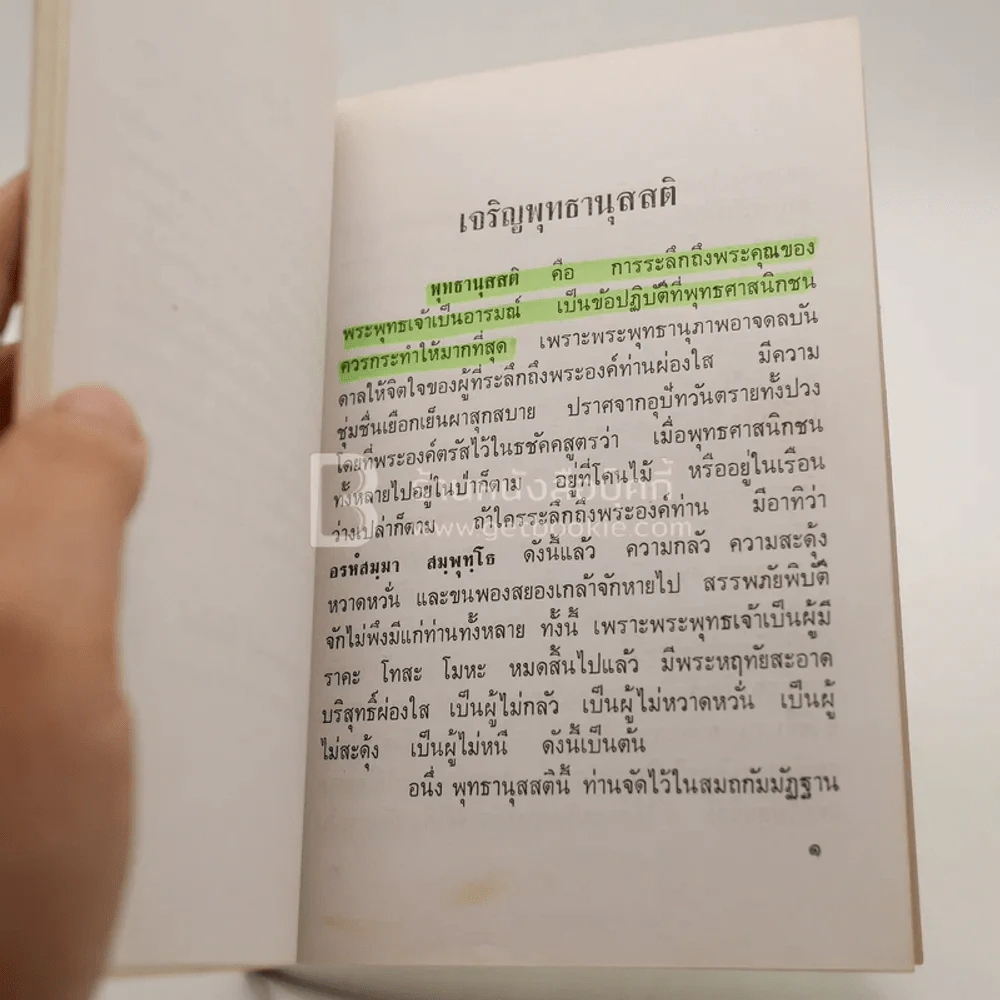 เจริญพุทธานุสสติ
พุทธานุสสติ คือ การระลึกถึงพระคุณของ
พระพุทธเจ้าเป็นอารมณ์ เป็นข้อปฏิบัติที่พุทธศาสนิกชน
ควรกระทำให้มากที่สุด เพราะพระพุทธานุภาพอาจดลบัน
ดาลให้จิตใจของผู้ที่ระลึกถึงพระองค์ท่านผ่องใส มีความ
ชุ่มชื่นเยือกเย็นผาสุกสบาย ปราศจากอุปัทวันตรายทั้งปวง
โดยที่พระองค์ตรัสไว้ในธชัคคสูตรว่า เมื่อพุทธศาสนิกชน
ทั้งหลายไปอยู่ในป่าก็ตาม อยู่ที่โคนไม้ หรืออยู่ในเรือน
ว่างเปล่าก็ตาม ถ้าใครระลึกถึงพระองค์ท่าน มีอาทิว่า
อรหํสมฺมา สมฺพุทฺโธ ดังนี้แล้ว ความกลัว ความสะดุ้ง
หวาดหวั่น และขนพองสยองเกล้าจักหายไป สรรพภัยพิบัติ
จักไม่พึงมีแก่ท่านทั้งหลาย ทั้งนี้ เพราะพระพุทธเจ้าเป็นผู้มี
ราคะ โทสะ โมหะ หมดสิ้นไปแล้ว มีพระหฤทัยสะอาด
บริสุทธิ์ผ่องใส เป็นผู้ไม่กลัว เป็นผู้ไม่หวาดหวั่น เป็นผู้
ไม่สะดุ้ง เป็นผู้ไม่หนี ดังนี้เป็นต้น
อนึ่ง พุทธานุสสตินี้ ท่านจัดไว้ในสมถกัมมัฏฐาน
๑
ร้านหนังสือบุ๊คกี้
www.getbookie.com